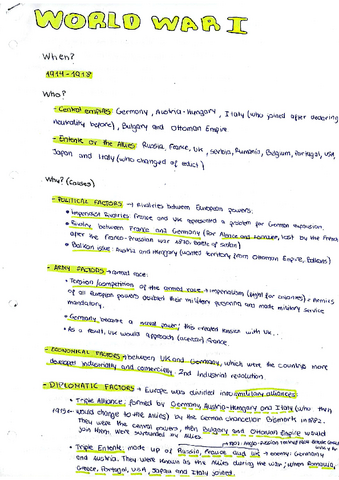 WORLD WAR I
When?
1914-1918
Who?
- Central empires: Germany, Austria-Hungary, Italy (who joined after declaring
neutrality before), Bulgary and Ottoman Empire.
- Entente or the Allies: Russia, France, UK, Serbia, Rumania, Belgium, Portugal, USA,
Japan and Italy (who changed of
Why? (Causes)
- POLITICAL FACTORS → Rivalries between European powers.
• Imperialist Rivalries France and UK represented a problem for German expansion.
• Rivalry between France and Germany (for Alsace and Lorraine, lost by the French
after the Franco-Prussian war 1870, battle of Sedan)
• Balkan issue: Austria and Hungary (wanted territory from Ottoman Empire, Balkans)
- ARMY FACTORS → armed race:
• Tension/competition of the armed race → imperialism (fight for colonies) → Armies
of all European powers doubled their military spending and made military service
mandatory.
• Germany became a naval power; this created tension with UK...
• As a result, UK would approach France.
- ECONOMICAL FACTORS → between UK and Germany, which were the countries more
developed industrially and commercially. 2nd industrial revolution
- DIPLOMATIC FACTORS → Europe was divided into military alliances:
• Triple Alliance: formed by Germany, Austria-Hungary and Italy (who then
1915 would change to the Allies) by the German chancellor Bismark in 1882.
They were the central powers, then Bulgary and Ottoman Empire would
join them. Were surrounded by Allies.
• Triple Entente: made up of Russia, France and UK → enemy: Germany
and Austria. They were known as the Allies during the war, when Romania,
Greece, Portugal, USA, Japan and Italy joined.